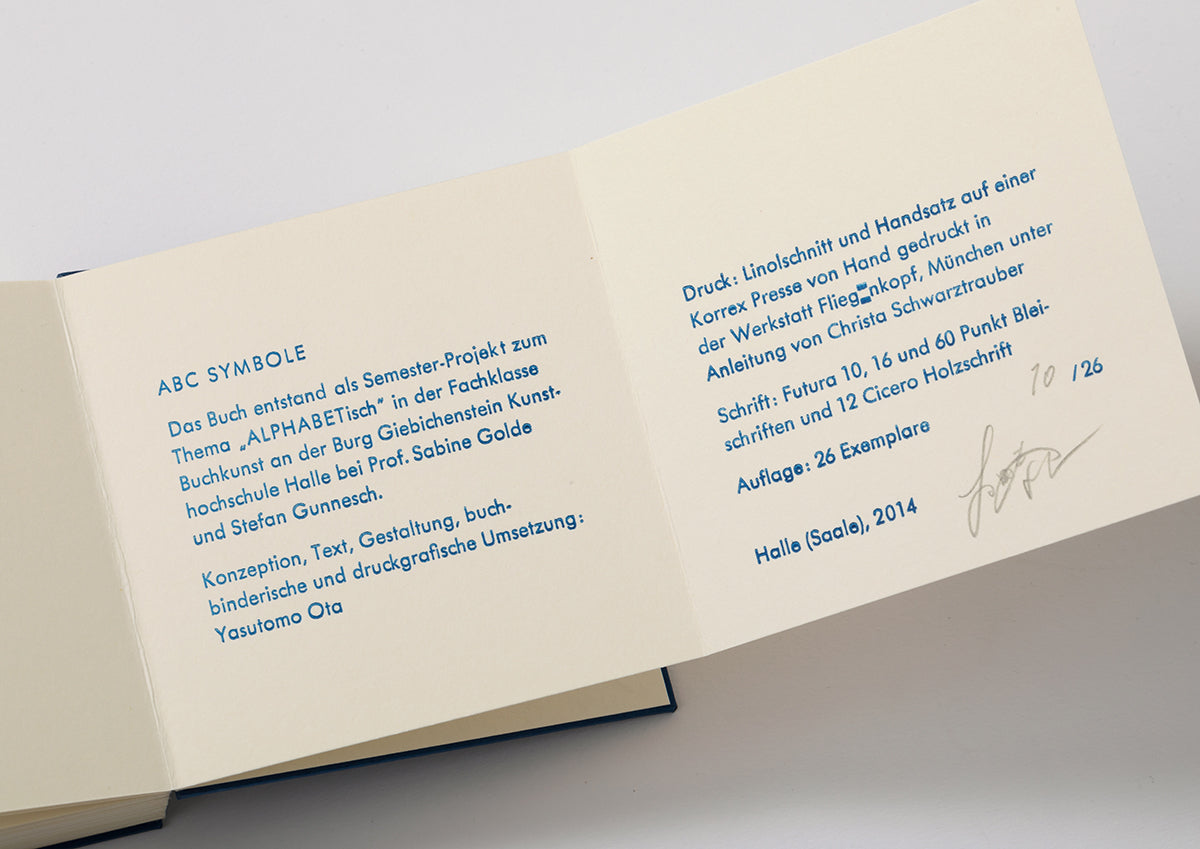 ABC SYMBOLE
Das Buch entstand als Semester-Projekt zum
Thema „ALPHABETisch“ in der Fachklasse
Buchkunst an der Burg Giebichenstein Kunst-
hochschule Halle bei Prof. Sabine Golde
und Stefan Gunnesch.
Konzeption, Text, Gestaltung, buch-
binderische und druckgrafische Umsetzung:
Yasutomo Ota
Druck: Linolschnitt und Handsatz auf einer
Korrex Presse von Hand gedruckt in
der Werkstatt Flieg〓nkopf, München unter
Anleitung von Christa Schwarztrauber
Schrift: Futura 10, 16 und 60 Punkt Blei-
schriften und 12 Cicero Holzschrift
Auflage: 26 Exemplare
10 / 26
Halle (Saale), 2014